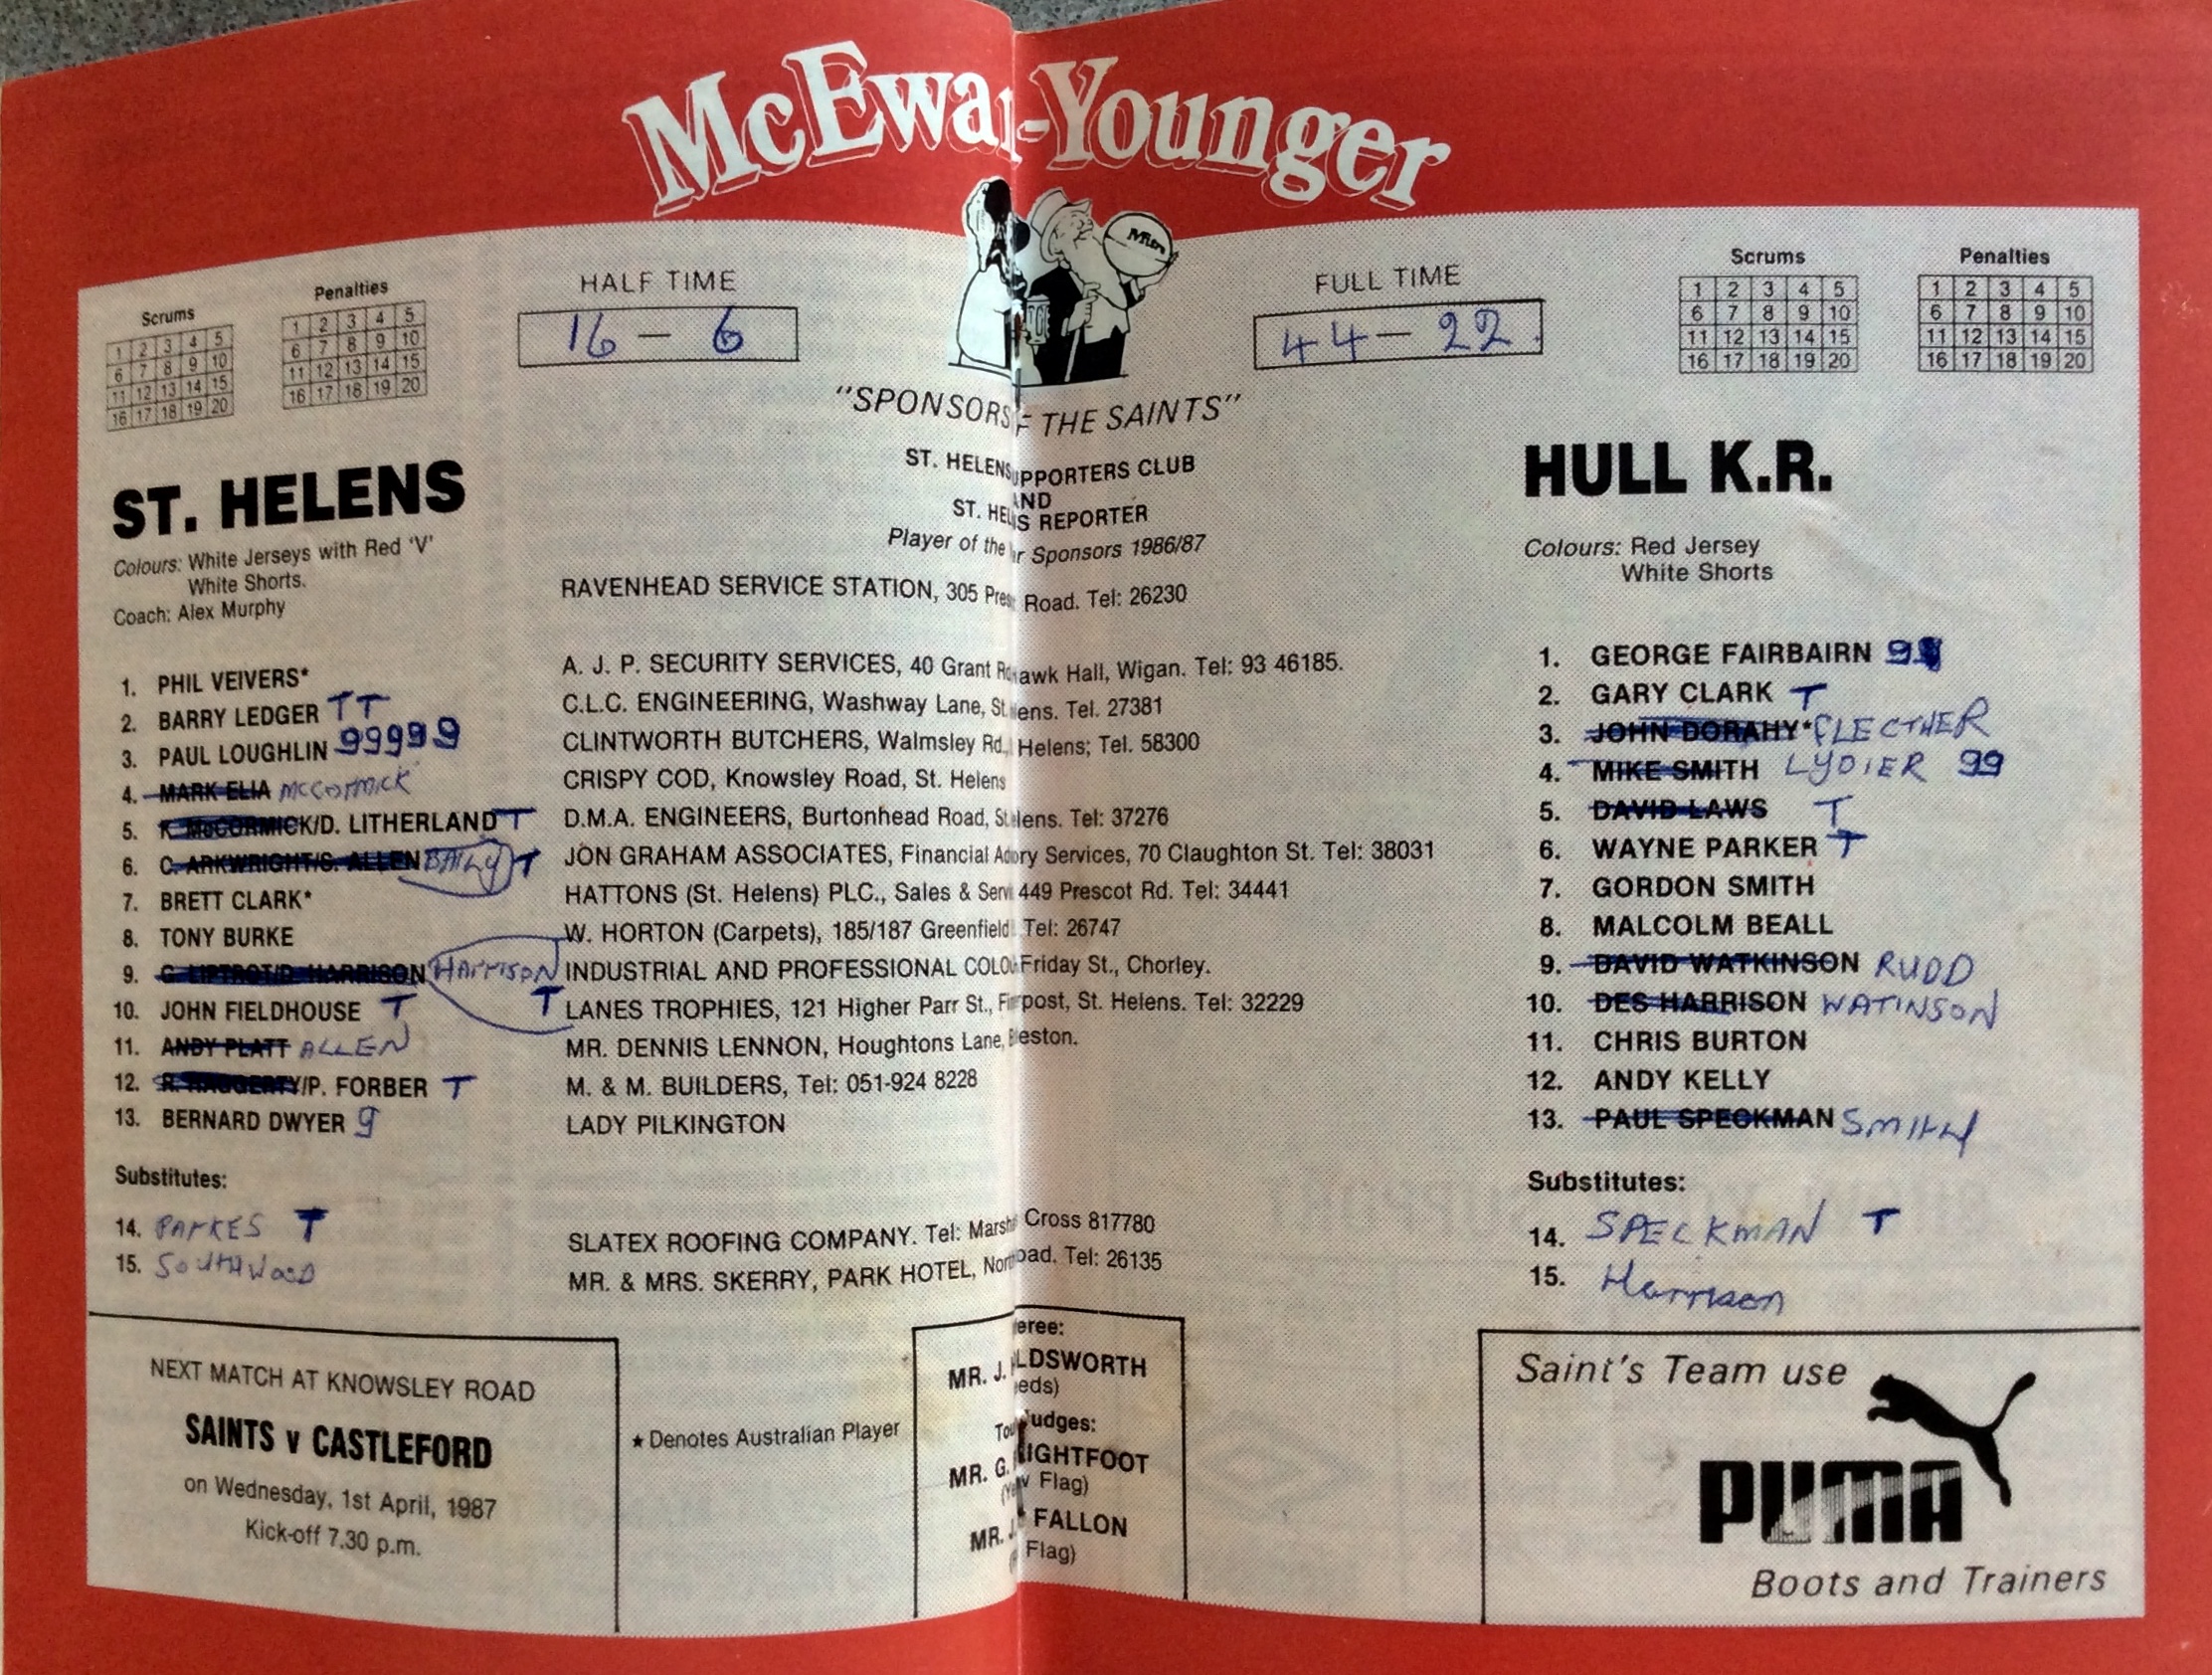 McEwan-Younger
Scrums
1 2 3 4 5
6 7 8 9 10
11 12 13 14 15
16 17 18 19 20
Penalties
1 2 3 4 5
6 7 8 9 10
11 12 13 14 15
16 17 18 19 20
HALF TIME
16 - 6
FULL TIME
44 - 22.
Scrums
1 2 3 4 5
6 7 8 9 10
11 12 13 14 15
16 17 18 19 20
Penalties
1 2 3 4 5
6 7 8 9 10
11 12 13 14 15
16 17 18 19 20
"SPONSORS F THE SAINTS"
ST. HELENS UPPORTERS CLUB
AND
ST. HEL NS REPORTER
Player of the ar Sponsors 1986/87
RAVENHEAD SERVICE STATION, 305 Pres Road. Tel: 26230
ST. HELENS
Colours: White Jerseys with Red 'V'
White Shorts.
Coach: Alex Murphy
1. PHIL VEIVERS*
2. BARRY LEDGER T T
3. PAUL LOUGHLIN 99999
4. MARK ELIA McCORMICK
5. K. McCORMICK/D. LITHERLAND T
6. C. ARKWRIGHT/S. ALLEN BAILY T
7. BRETT CLARK*
8. TONY BURKE
9. G. LIPTROT/D. HARRISON HARRISON T
10. JOHN FIELDHOUSE T
11. ANDY PLATT ALLEN
12. R. HAGGERTY/P. FORBER T
13. BERNARD DWYER 9
Substitutes:
14. PARKES T
15. SOUTHWOOD
A. J. P. SECURITY SERVICES, 40 Grant R awk Hall, Wigan. Tel: 93 46185.
C.L.C. ENGINEERING, Washway Lane, St. ens. Tel. 27381
CLINTWORTH BUTCHERS, Walmsley Rd., Helens; Tel. 58300
CRISPY COD, Knowsley Road, St. Helens
D.M.A. ENGINEERS, Burtonhead Road, St. lens. Tel: 37276
JON GRAHAM ASSOCIATES, Financial Ad ory Services, 70 Claughton St. Tel: 38031
HATTONS (St. Helens) PLC., Sales & Servi 449 Prescot Rd. Tel: 34441
W. HORTON (Carpets), 185/187 Greenfield Tel: 26747
INDUSTRIAL AND PROFESSIONAL COLO Friday St., Chorley.
LANES TROPHIES, 121 Higher Parr St., Fi rpost, St. Helens. Tel: 32229
MR. DENNIS LENNON, Houghtons Lane, Eleston.
M. & M. BUILDERS, Tel: 051-924 8228
LADY PILKINGTON
SLATEX ROOFING COMPANY. Tel: Marsh Cross 817780
MR. & MRS. SKERRY, PARK HOTEL, Nor oad. Tel: 26135
HULL K.R.
Colours: Red Jersey
White Shorts
1. GEORGE FAIRBAIRN 9
2. GARY CLARK T
3. JOHN DORAHY* FLECTHER
4. MIKE SMITH LYDIER 99
5. DAVID LAWS T
6. WAYNE PARKER T
7. GORDON SMITH
8. MALCOLM BEALL
9. DAVID WATKINSON RUDD
10. DES HARRISON WATINSON
11. CHRIS BURTON
12. ANDY KELLY
13. PAUL SPECKMAN SMITH
Substitutes:
14. SPECKMAN T
15. Harrison
NEXT MATCH AT KNOWSLEY ROAD
SAINTS v CASTLEFORD
on Wednesday, 1st April, 1987
Kick-off 7.30 p.m.
★ Denotes Australian Player
eree:
MR. J. LDSWORTH
eds)
Tou udges:
MR. G. LIGHTFOOT
(Ye w Flag)
MR. J. FALLON
( Flag)
Saint's Team use
PUMA
Boots and Trainers